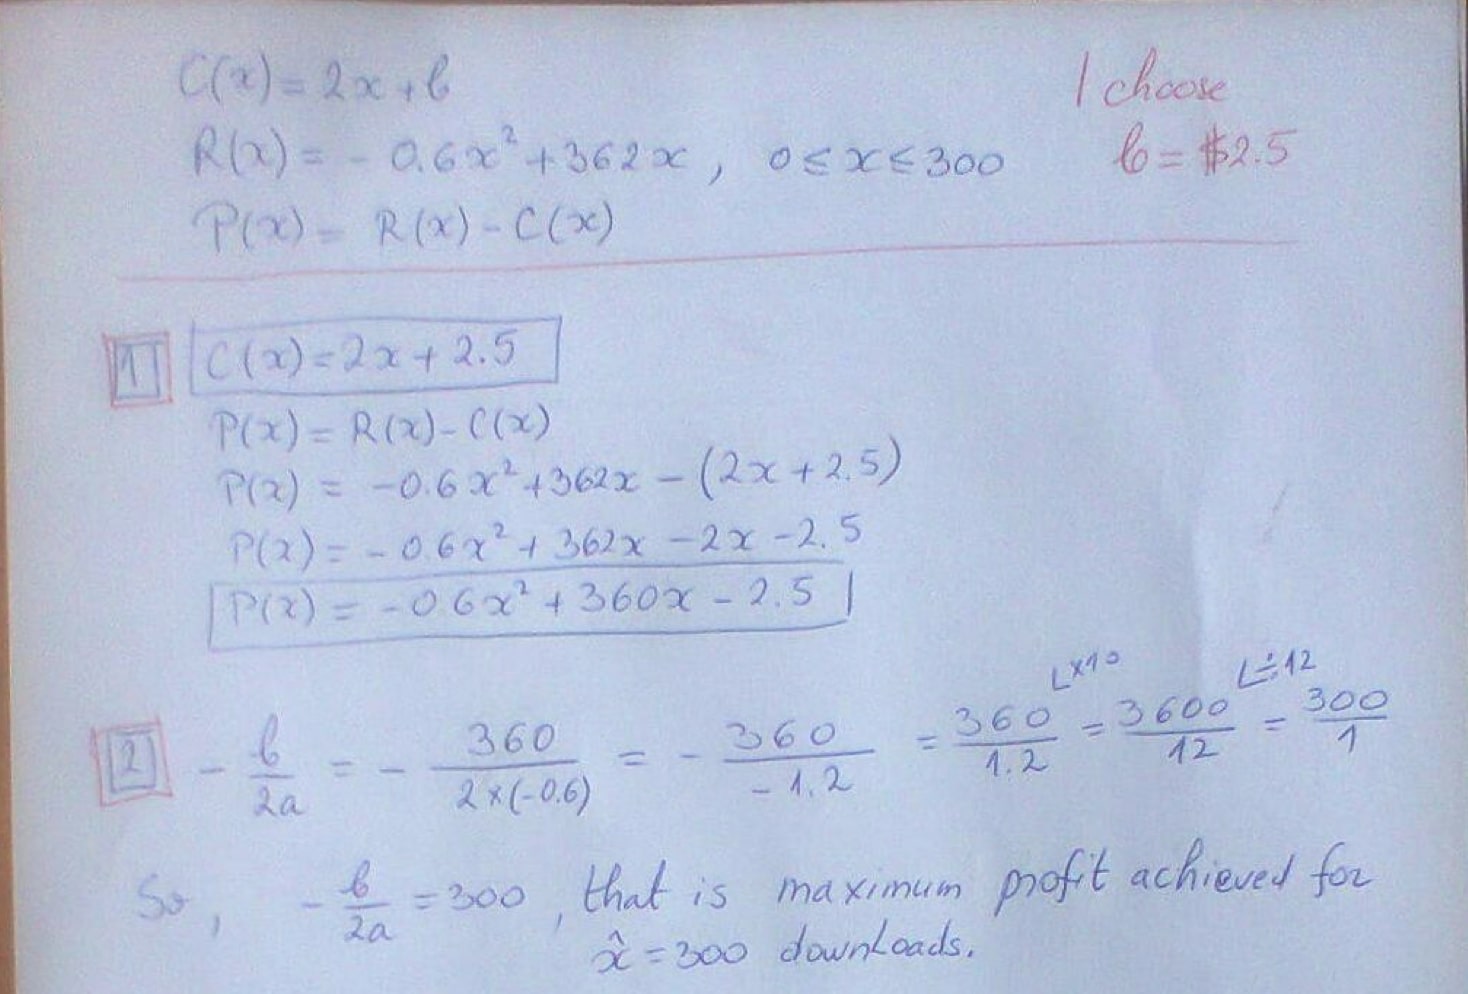 C(x) = 2x + b
I choose
R(x) = - 0.6x² + 362x , 0 ≤ x ≤ 300
b = $2.5
P(x) = R(x) - C(x)
1 C(x) = 2x + 2.5
P(x) = R(x) - C(x)
P(x) = -0.6x² + 362x - (2x + 2.5)
P(x) = - 0.6x² + 362x - 2x - 2.5
P(x) = - 06x² + 360x - 2.5
2 - b/2a = - 360/2×(-0.6) = - 360/-1.2 = 360/1.2 ×10 = 3600/12 ÷12 = 300/1
So, - b/2a = 300, that is maximum profit achieved for
x̂ = 300 downloads.